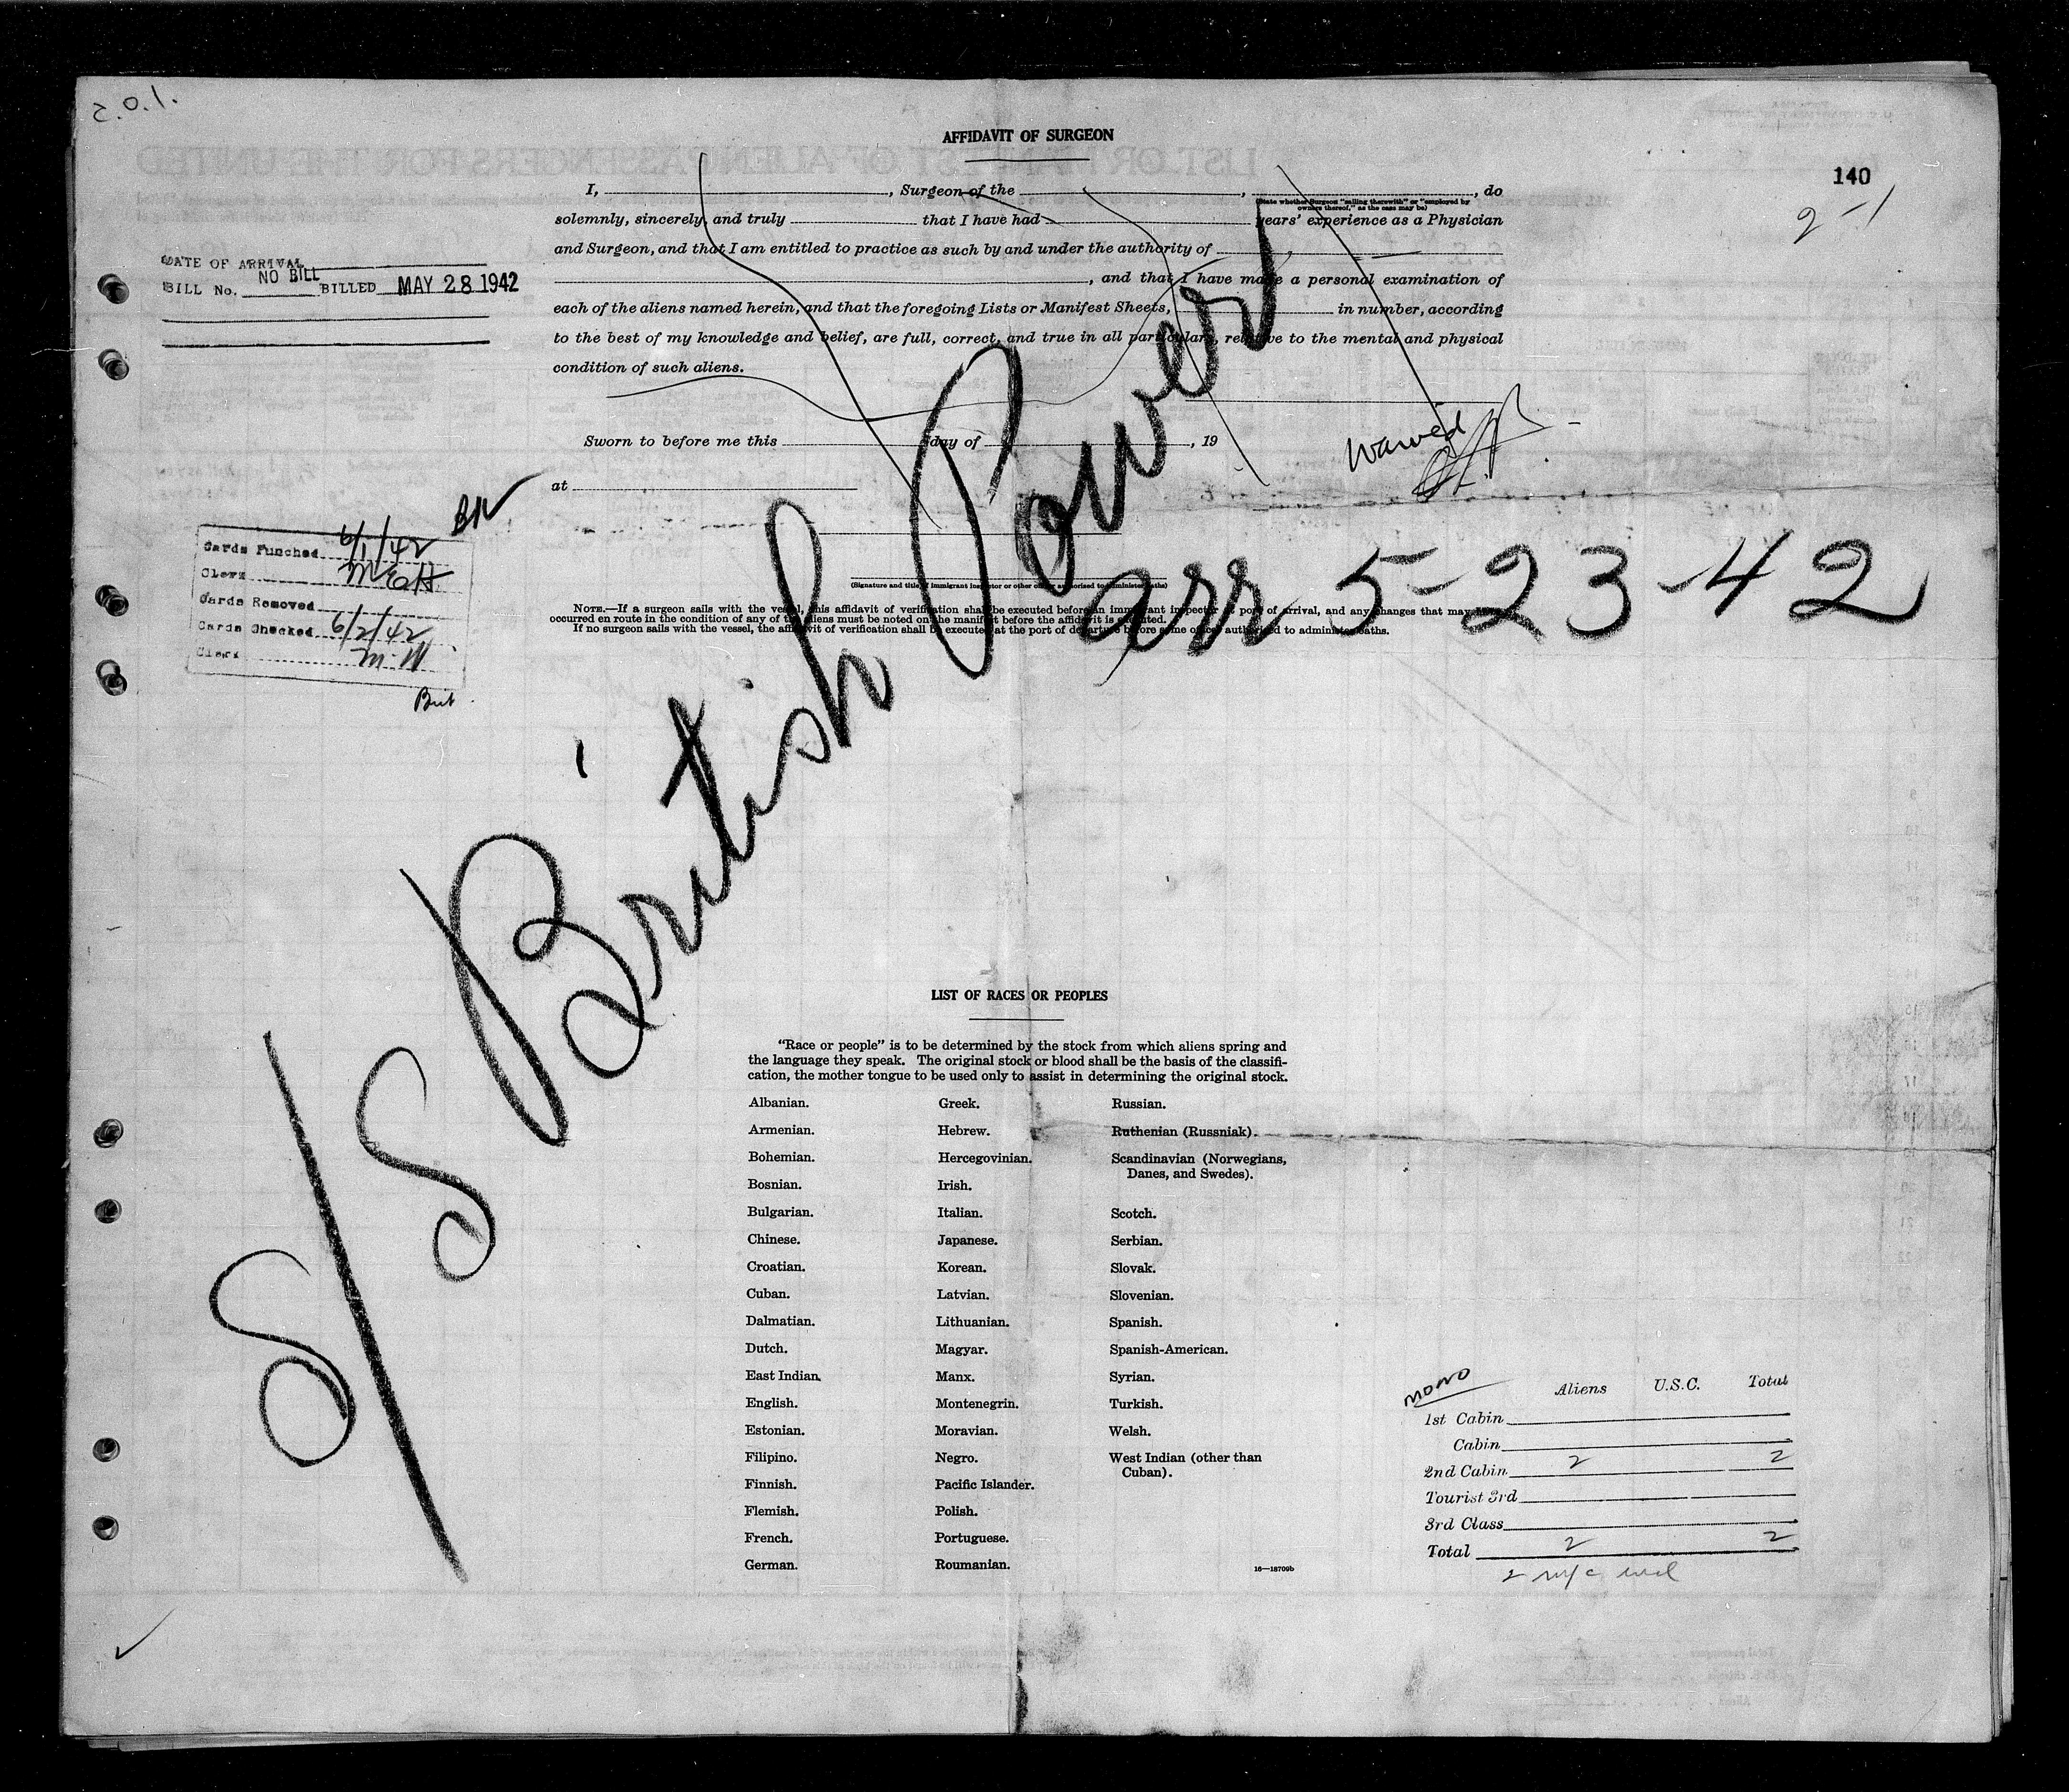 AFFIDAVIT OF SURGEON
140
2-1
I, , Surgeon of the , , do
(State whether Surgeon "sailing therewith" or "employed by
owners thereof," as the case may be)
solemnly, sincerely, and truly that I have had years' experience as a Physician
and Surgeon, and that I am entitled to practice as such by and under the authority of
, and that I have made a personal examination of
each of the aliens named herein, and that the foregoing Lists or Manifest Sheets, in number, according
to the best of my knowledge and belief, are full, correct, and true in all particulars, relative to the mental and physical
condition of such aliens.
DATE OF ARRIVAL
BILL No. NO BILL BILLED MAY 28 1942
Waived
Sworn to before me this day of , 19
at
(Signature and title of immigrant inspector or other officer authorized to administer oaths)
NOTE.—If a surgeon sails with the vessel, this affidavit of verification shall be executed before an immigrant inspector at port of arrival, and any changes that may
occurred en route in the condition of any of the aliens must be noted on the manifest before the affidavit is executed.
If no surgeon sails with the vessel, the affidavit of verification shall be executed at the port of departure before some officer authorized to administer oaths.
Cards Punched 6/1/42
Clerk
Cards Removed
Cards Checked 6/2/42
Clerk M.W
Brit
S/S British Power
arr 5-23-42
LIST OF RACES OR PEOPLES
"Race or people" is to be determined by the stock from which aliens spring and
the language they speak. The original stock or blood shall be the basis of the classifi-
cation, the mother tongue to be used only to assist in determining the original stock.
Albanian.
Armenian.
Bohemian.
Bosnian.
Bulgarian.
Chinese.
Croatian.
Cuban.
Dalmatian.
Dutch.
East Indian.
English.
Estonian.
Filipino.
Finnish.
Flemish.
French.
German.
Greek.
Hebrew.
Hercegovinian.
Irish.
Italian.
Japanese.
Korean.
Latvian.
Lithuanian.
Magyar.
Manx.
Montenegrin.
Moravian.
Negro.
Pacific Islander.
Polish.
Portuguese.
Roumanian.
Russian.
Ruthenian (Russniak).
Scandinavian (Norwegians,
Danes, and Swedes).
Scotch.
Serbian.
Slovak.
Slovenian.
Spanish.
Spanish-American.
Syrian.
Turkish.
Welsh.
West Indian (other than
Cuban).
16—18709b
MONO
Aliens U.S.C. Total
1st Cabin
Cabin
2nd Cabin 2 2
Tourist 3rd
3rd Class
Total 2 2